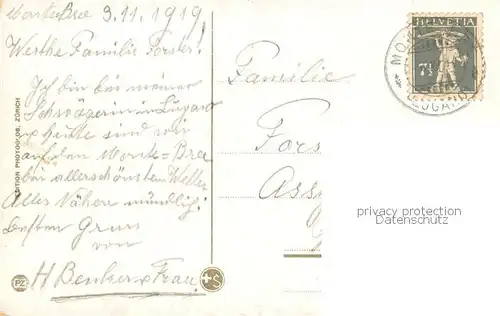 Monte Bre 9.11.1919
Werthe Familie Forster!
Ich bin bei meiner
Schwägerin in Lugano
& heute sind wir
auf dem Monte-Bre
bei allerschönstem Wetter
Alles Nähere mündlich!
Besten Gruss
von
H Benker & Frau
EDITION PHOTOGLOB, ZÜRICH
PZ
+S
Familie
Fors
Ass
HELVETIA
7½
MO
LUGANO
privacy protection
Datenschutz